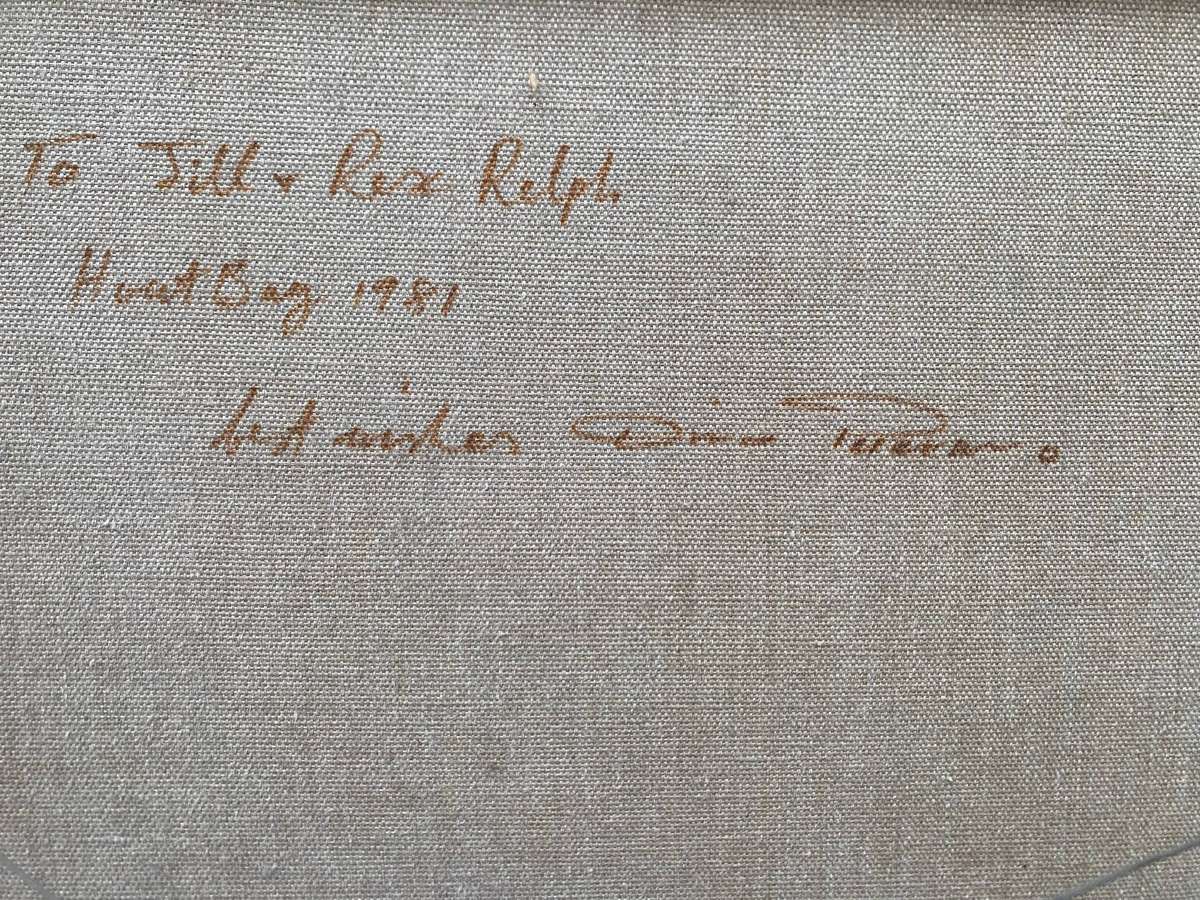 To Jill & Rex Relph.
Hout Bay 1981
best wishes